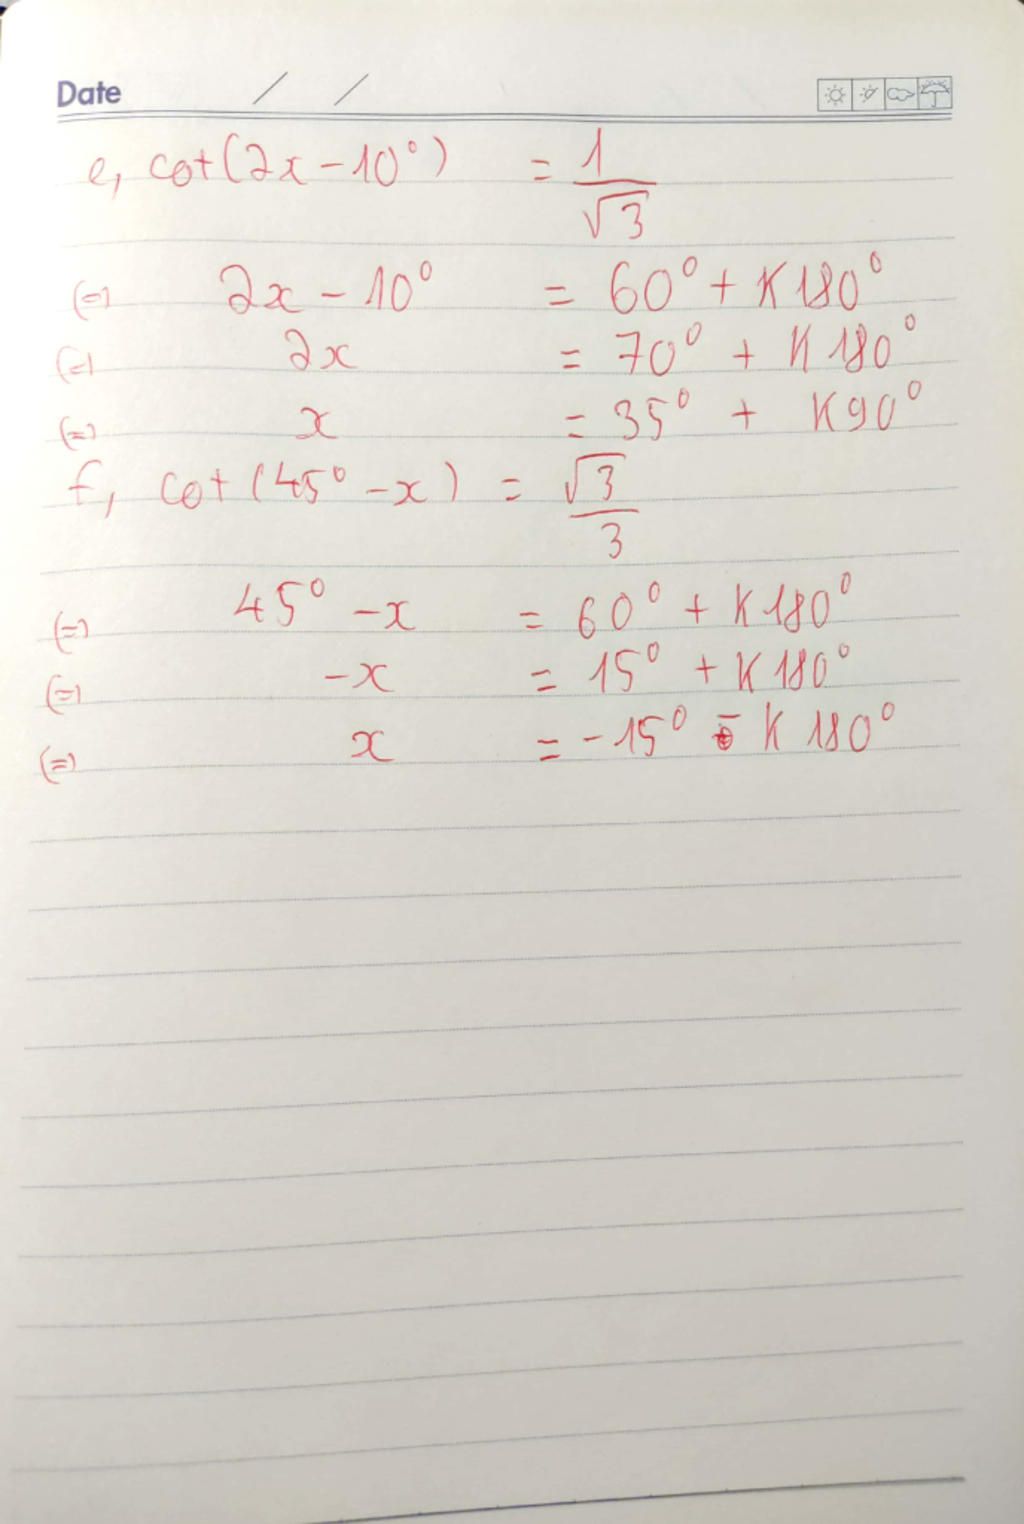 Date / /
e, cot(2x - 10°) = 1/√3
(=) 2x - 10° = 60° + K180°
(=) 2x = 70° + K180°
(=) x = 35° + K90°
f, cot(45° - x) = √3/3
(=) 45° - x = 60° + K180°
(=) -x = 15° + K180°
(=) x = -15° - K180°